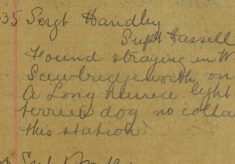 35 Sergt Handley
Supt Hassell
Found straying in W
Sawbridgeworth on
a Long haired light
terrier dog no colla
this station